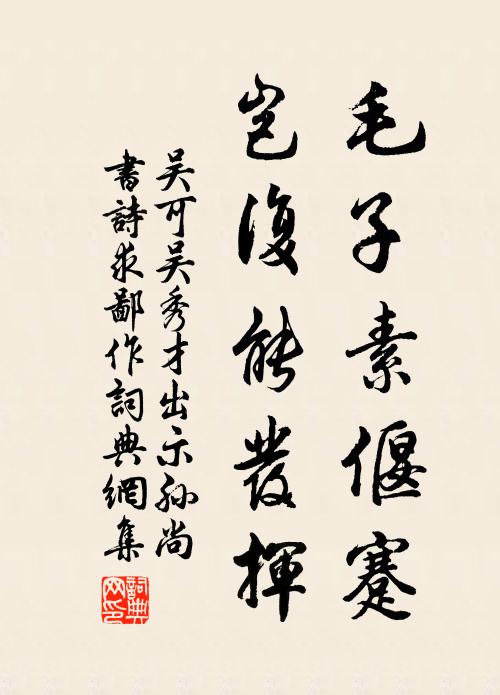 毛子素偃蹇
豈復能發揮
吳可吳秀才出示孙尚
書詩求鄙作詞典網集
詞典網印